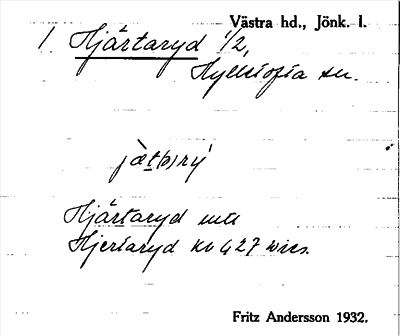 Västra hd., Jönk. l.
1 Hjärtaryd 1/2,
Hylletofta sn.
jæt(ə)rý
Hjärtaryd
Hjertaryd
Fritz Andersson 1932.